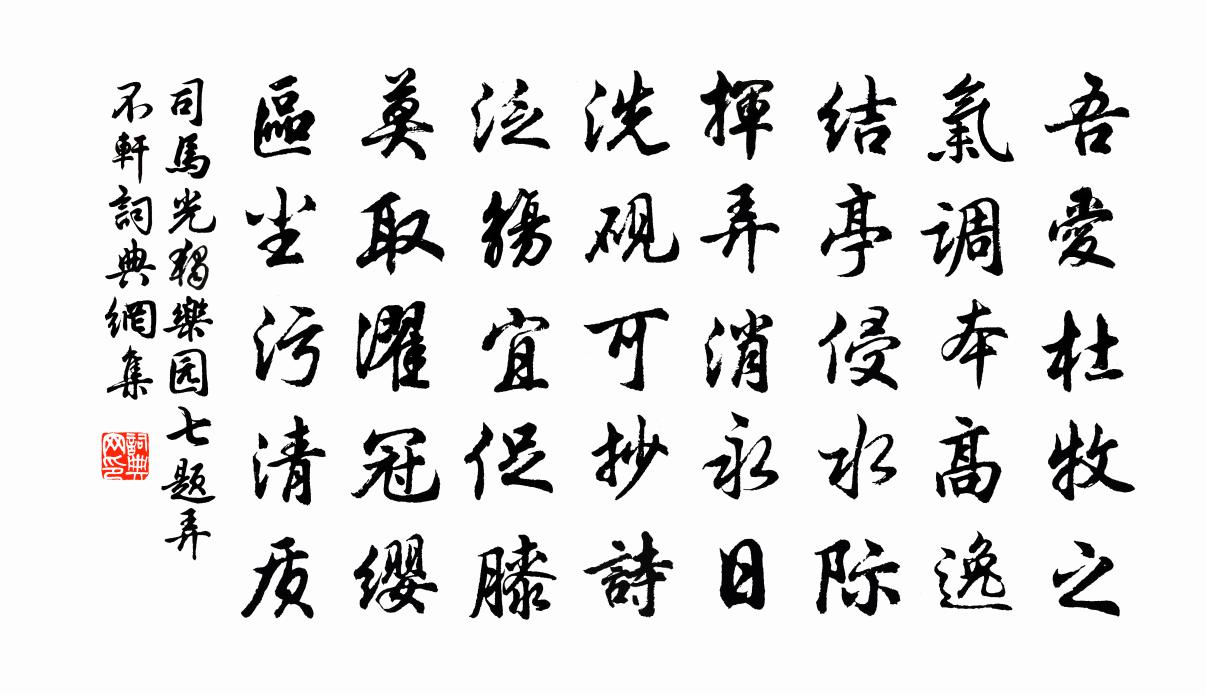 吾愛杜牧之
氣调本高逸
结亭侵水际
揮弄消永日
洗硯可抄詩
泛觴宜促膝
莫取濯冠纓
區尘污清质
司馬光獨樂园七题弄
不軒詞典網集
詞典网印